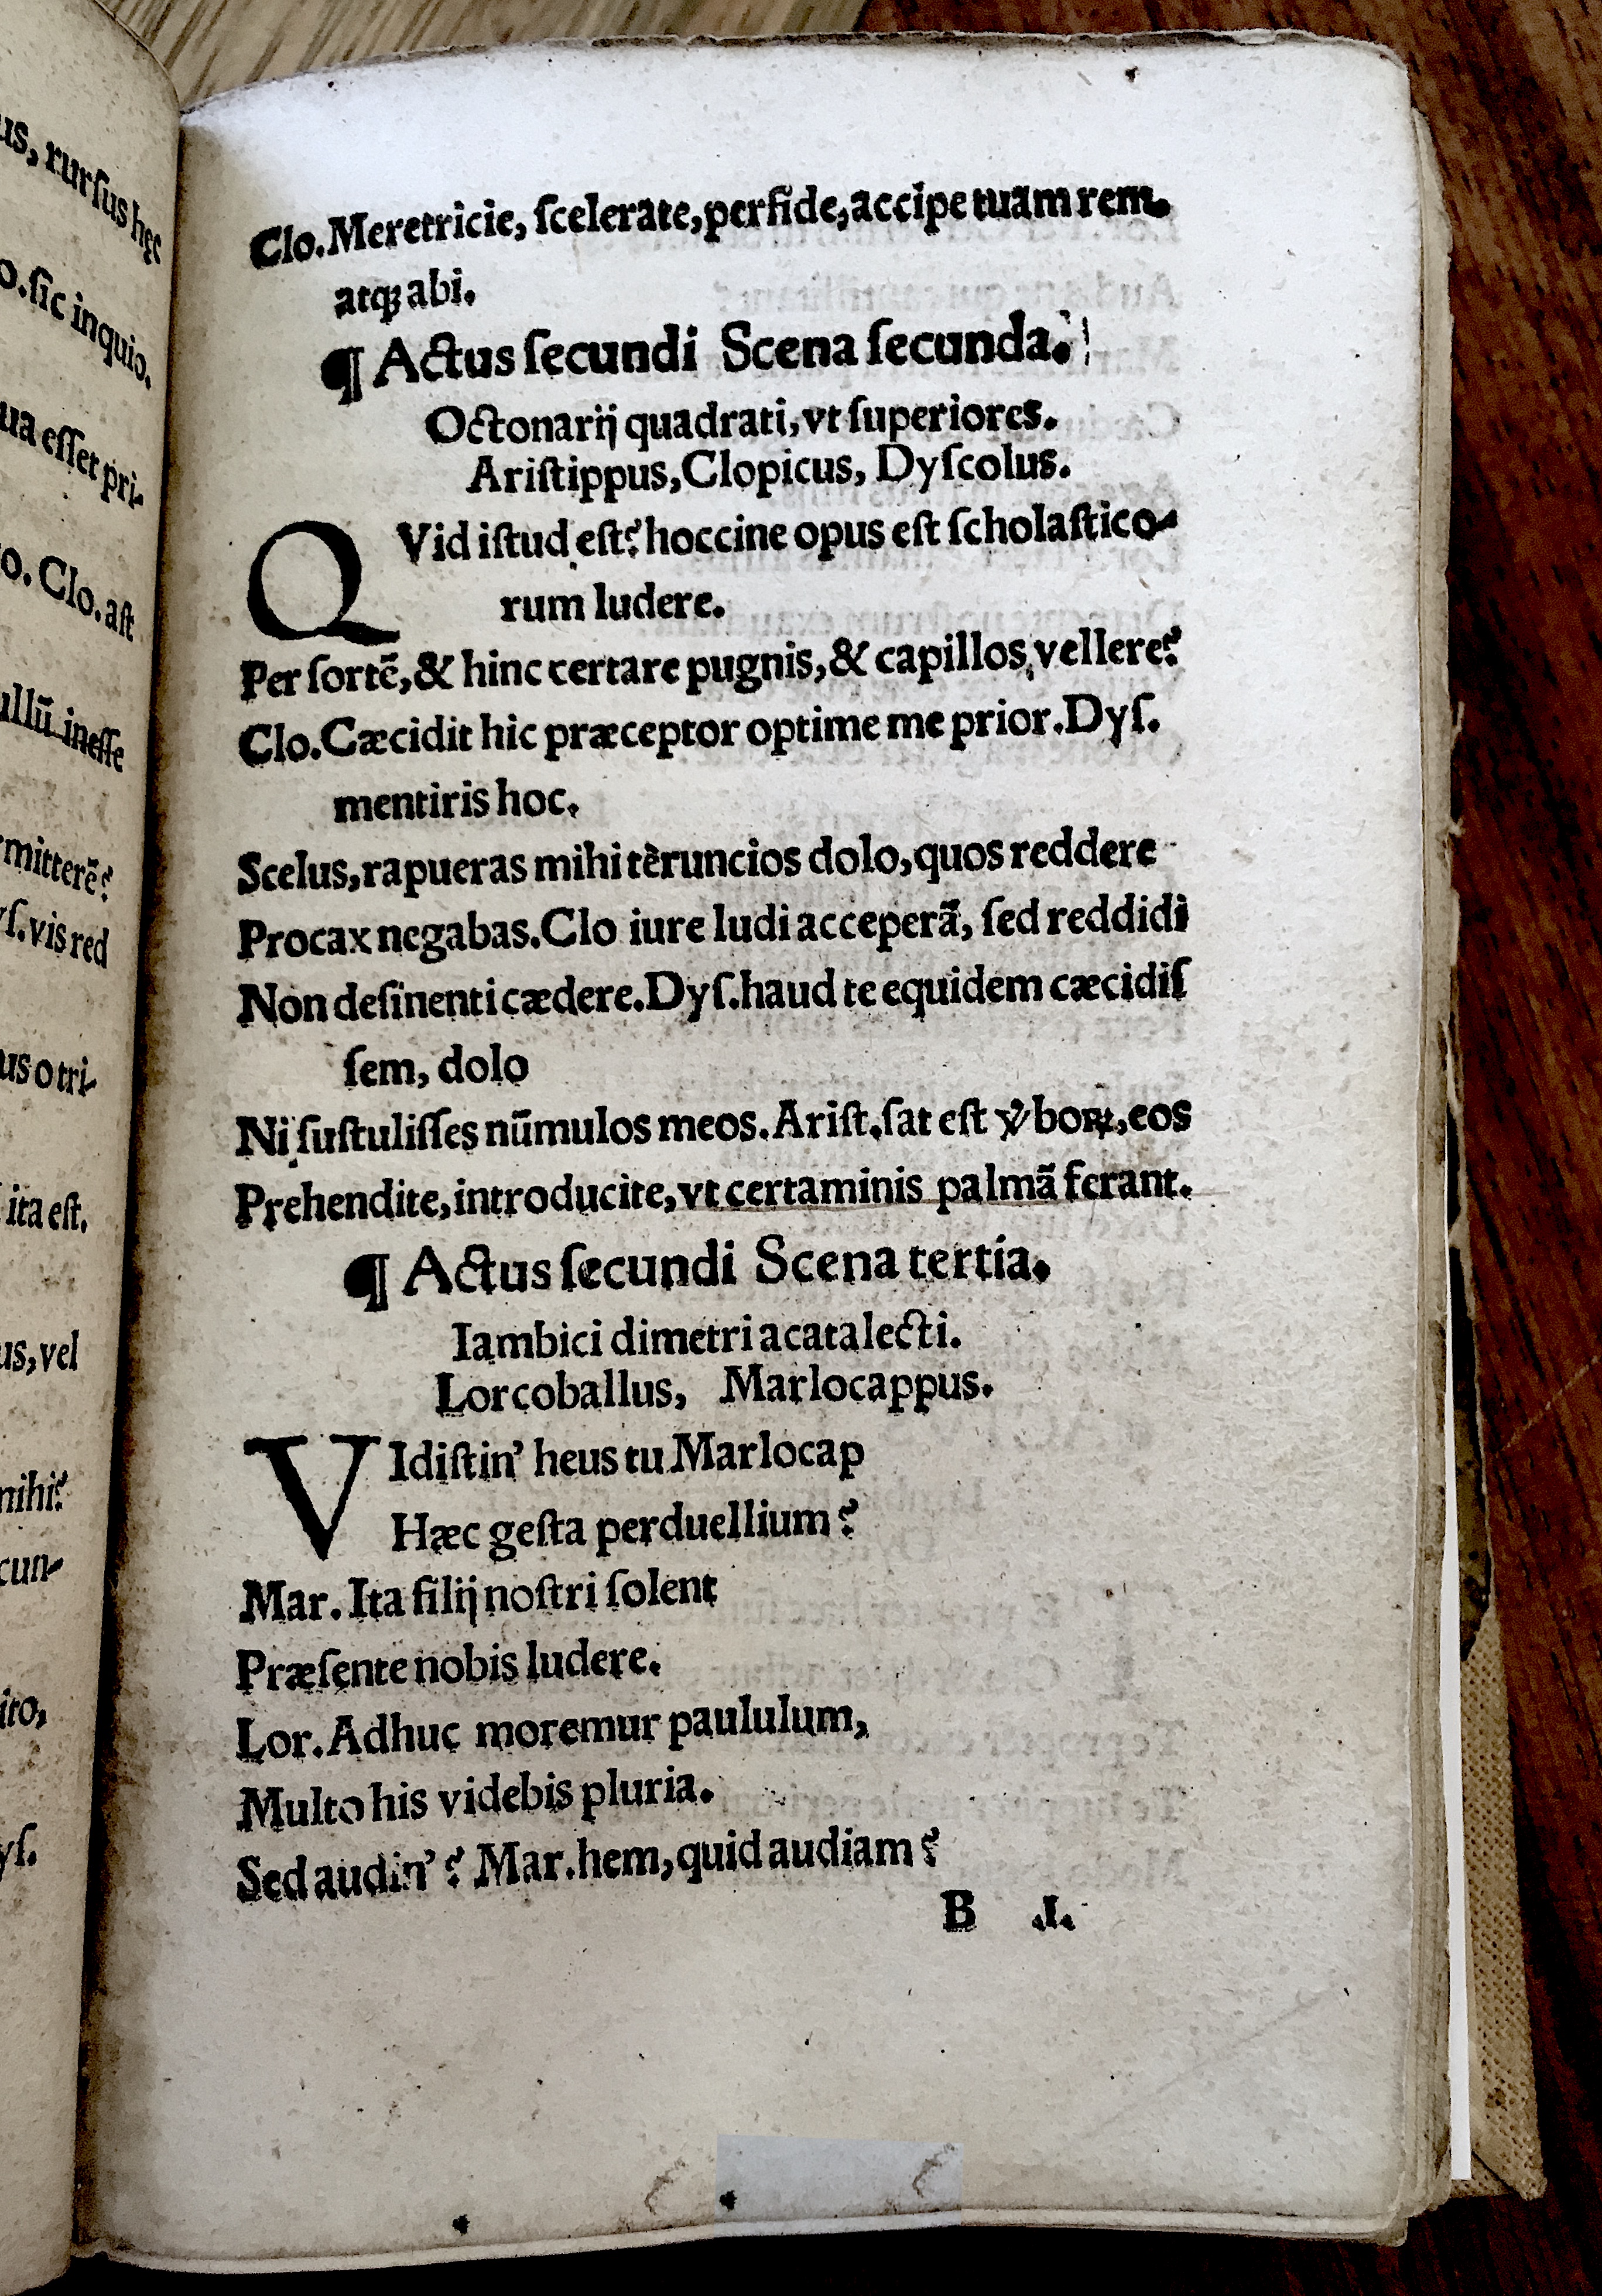 us, rurſus hęc
o. ſic inquio.
ua eſſet pri-
o. Clo. aſt
ullū ineſſe
mitterē?
ſ. vis red
us o tri-
ita eſt.
us, vel
mihi?
cun-
ito,
yſ.
Clo. Meretricie, ſcelerate, perfide, accipe tuam rem.
atq; abi.
¶ Actus ſecundi Scena ſecunda.
Octonarij quadrati, vt ſuperiores.
Ariſtippus, Clopicus, Dyſcolus.
QVid iſtud eſt? hoccine opus eſt ſcholaſtico-
rum ludere.
Per ſortē, & hinc certare pugnis, & capillos vellere?
Clo. Cæcidit hic præceptor optime me prior. Dyſ.
mentiris hoc.
Scelus, rapueras mihi tèruncios dolo, quos reddere
Procax negabas. Clo iure ludi acceperā, ſed reddidi
Non deſinenti cædere. Dyſ. haud te equidem cæcidiſ
ſem, dolo
Ni ſuſtuliſſes nūmulos meos. Ariſt. ſat eſt v̾boꝝ, eos
Prehendite, introducite, vt certaminis palmā ferant.
¶ Actus ſecundi Scena tertia.
Iambici dimetri acatalecti.
Lorcoballus, Marlocappus.
VIdiſtin’ heus tu Marlocap
Hæc geſta perduellium?
Mar. Ita filij noſtri ſolent
Præſente nobis ludere.
Lor. Adhuc moremur paululum,
Multo his videbis pluria.
Sed audin’? Mar. hem, quid audiam?
B .I.